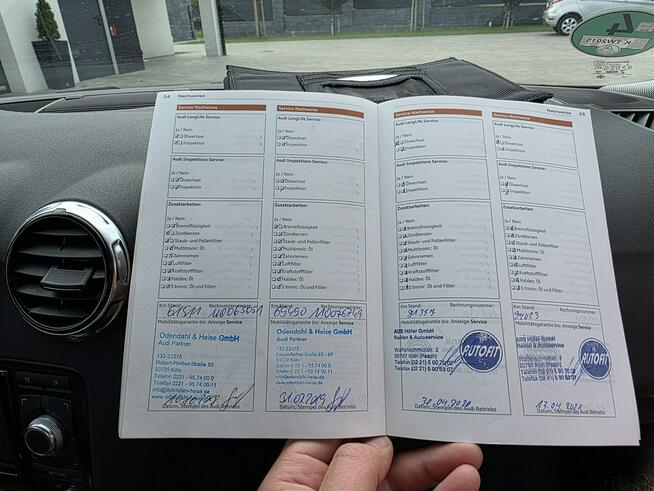 24 Nachweise
Service-Nachweise
Audi LongLife Service:
Ja / Nein
Ölwechsel
Inspektion
Audi Inspektions Service:
Ja / Nein
Ölwechsel
Inspektion
Zusatzarbeiten:
Ja / Nein
Bremsflüssigkeit
Zündkerzen
Staub- und Pollenfilter
Multitronic: Öl
Zahnriemen
Luftfilter
Kraftstofffilter
Haldex: Öl
S tronic: Öl und Filter
Km Stand: Rechnungsnummer:
61511
Mobilitätsgarantie bis: Anzeige Service
Odendahl & Heise GmbH
Audi Partner
133-33375
Robert-Perthel-Straße 65
50739 Köln
Telefon 0221 - 95 74 00 0
Telefax 0221 - 95 74 00 11
info@odendahl-heise.de
Datum, Stempel des Audi Betriebs
Service-Nachweise
Audi LongLife Service:
Ja / Nein
Ölwechsel
Inspektion
Audi Inspektions Service:
Ja / Nein
Ölwechsel
Inspektion
Zusatzarbeiten:
Ja / Nein
Bremsflüssigkeit
Zündkerzen
Staub- und Pollenfilter
Multitronic: Öl
Zahnriemen
Luftfilter
Kraftstofffilter
Haldex: Öl
S tronic: Öl und Filter
Km Stand: Rechnungsnummer:
Mobilitätsgarantie bis: Anzeige Service
Odendahl & Heise GmbH
Audi Partner
133-33375
Robert-Perthel-Straße 65 - 69
50739 Köln
Telefon 0221 - 95 74 00 0
Telefax 0221 - 95 74 00 11
info@odendahl-heise.de
www.odendahl-heise.de
31.07.2019
Datum, Stempel des Audi Betriebs
Service-Nachweise
Audi LongLife Service:
Ja / Nein
Ölwechsel
Inspektion
Audi Inspektions Service:
Ja / Nein
Ölwechsel
Inspektion
Zusatzarbeiten:
Ja / Nein
Bremsflüssigkeit
Zündkerzen
Staub- und Pollenfilter
Multitronic: Öl
Zahnriemen
Luftfilter
Kraftstofffilter
Haldex: Öl
S tronic: Öl und Filter
Km Stand: Rechnungsnummer:
81357
Mobilitätsgarantie bis: Anzeige Service
Höfer GmbH
Reifen & Autoservice
50767 Köln (Pesch)
AUTOFIT
Datum, Stempel des Audi Betriebs
Nachweise 25
Service-Nachweise
Audi LongLife Service:
Ja / Nein
Ölwechsel
Inspektion
Audi Inspektions Service:
Ja / Nein
Ölwechsel
Inspektion
Zusatzarbeiten:
Ja / Nein
Bremsflüssigkeit
Zündkerzen
Staub- und Pollenfilter
Multitronic: Öl
Zahnriemen
Luftfilter
Kraftstofffilter
Haldex: Öl
S tronic: Öl und Filter
Km Stand: Rechnungsnummer:
Mobilitätsgarantie bis: Anzeige Service
Höfer GmbH
Reifen & Autoservice
50767 Köln (Pesch)
AUTOFIT
13.04.2021
Datum, Stempel des Audi Betriebs
4